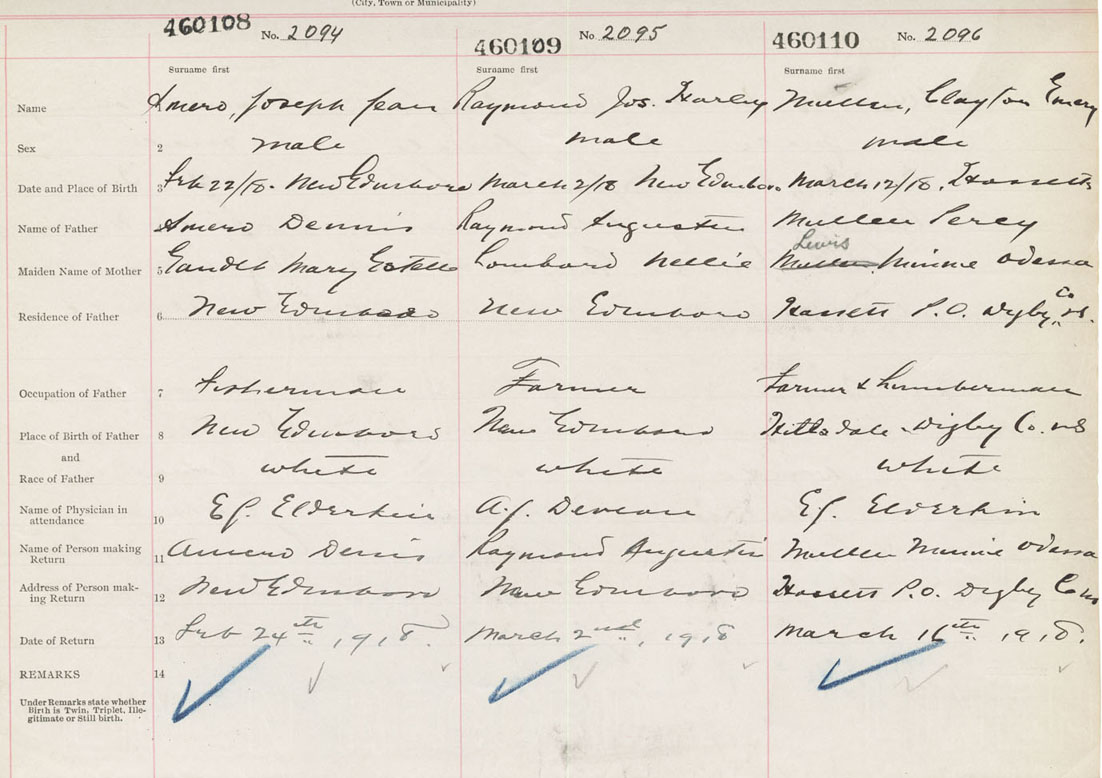 (City, Town or Municipality)
460108 No. 2094 460109 No. 2095 460110 No. 2096
Surname first Surname first Surname first
Name Amero, Joseph Jean Raymond Jos. Harley Mullen, Clayton Emery
Sex 2 male male male
Date and Place of Birth 3 Feb 22/18. New Edinboro March 2/18 New Edinboro March 12/18. Hassetts
Name of Father Amero Dennis Raymond Augustin Mullen Percy
Lewis
Maiden Name of Mother 5 Gaudet Mary Estelle Lombard Nellie Mullen Minnie Odessa
Residence of Father 6 New Edinboro New Edinboro Hassett P.O. Digby Co N.S.
Occupation of Father 7 Fisherman Farmer Farmer & Lumberman
Place of Birth of Father 8 New Edinboro New Edinboro Hillsdale Digby Co. NS
and
Race of Father 9 white white white
Name of Physician in attendance 10 E.J. Elderkin A.J. Deveau E.J. Elderkin
Name of Person making Return 11 Amero Denis Raymond Augustin Mullen Minnie Odessa
Address of Person making Return 12 New Edinboro New Edinboro Hassett P.O. Digby Co NS
Date of Return 13 Feb 24th, 1918. March 2nd, 1918 March 16th, 1918.
REMARKS 14
Under Remarks state whether
Birth is Twin, Triplet, Ille-
gitimate or Still birth.